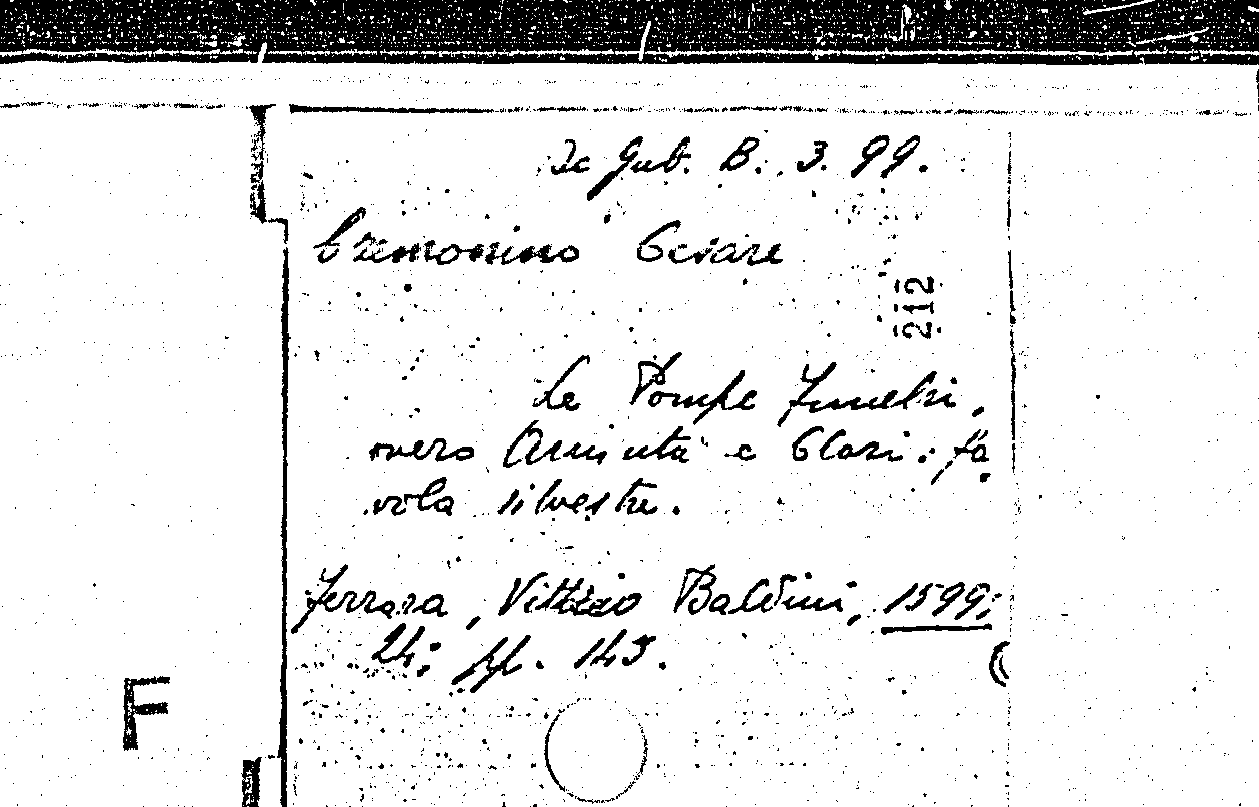 De Gub. B. 3. 99.
Cremonino Cesare
212
Le Pompe Funebri,
overo Aminta e Clori: fa
vola silvestre.
Ferrara, Vittorio Baldini, 1599;
24; pp. 143.
F